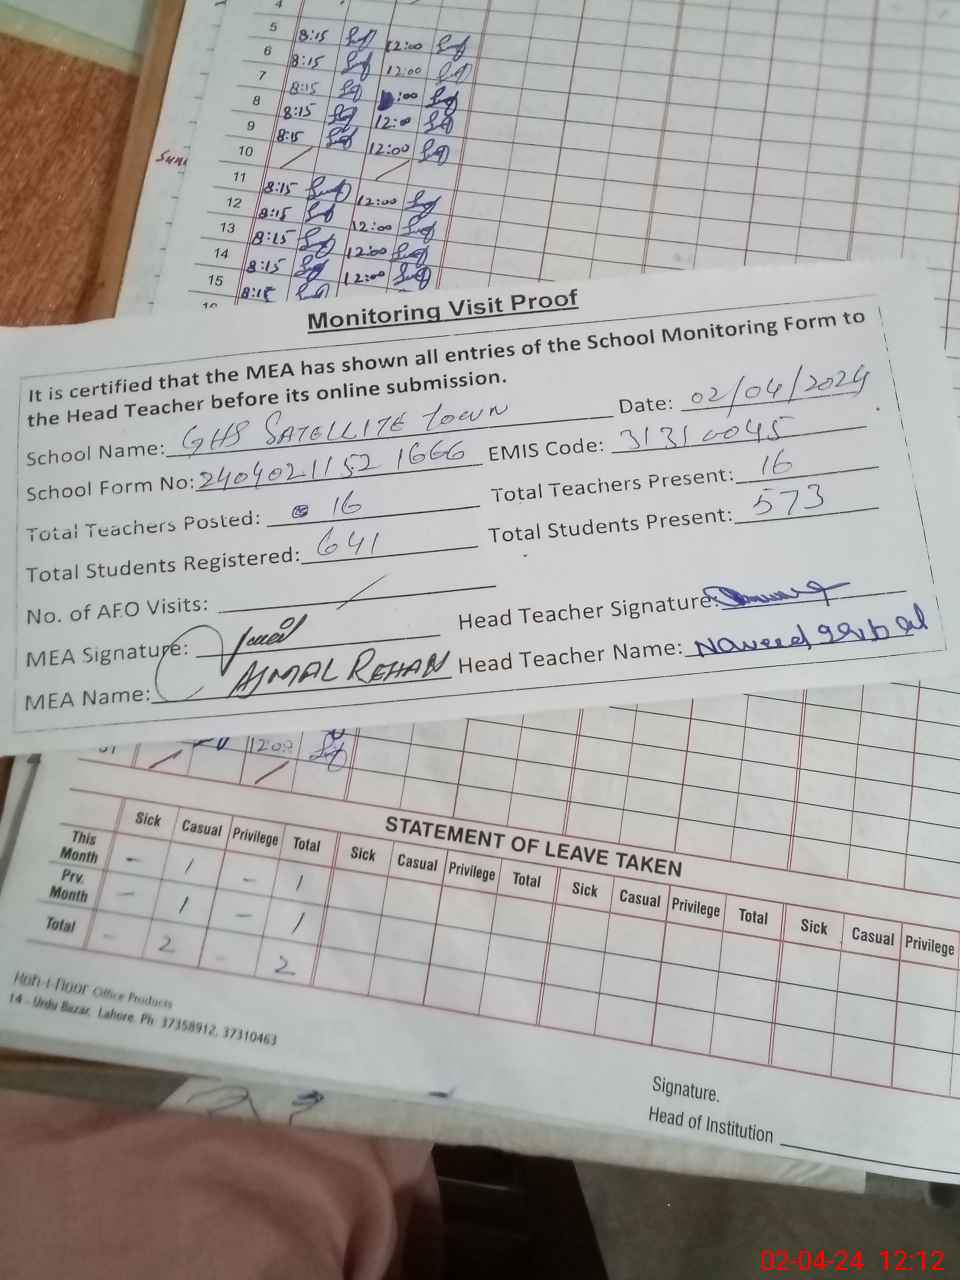 4
5 8:15 12:00
6 8:15 12:00
7 8:15 :00
8 8:15 12:00
9 8:15 12:00
10
11 8:15 12:00
12 8:15 12:00
13 8:15 12:00
14 8:15 12:00
15 8:15
Monitoring Visit Proof
It is certified that the MEA has shown all entries of the School Monitoring Form to
the Head Teacher before its online submission.
School Name: GHS SATELLITE TOWN Date: 02/04/2024
School Form No: 2404021152 1666 EMIS Code: 31310045
Total Teachers Posted: 16 Total Teachers Present: 16
Total Students Registered: 641 Total Students Present: 573
No. of AFO Visits: /
MEA Signature: Head Teacher Signature:
MEA Name: AJMAL REHAN Head Teacher Name: Naveed
STATEMENT OF LEAVE TAKEN
Sick Casual Privilege Total Sick Casual Privilege Total Sick Casual Privilege Total Sick Casual Privilege
This Month - 1 - 1
Prv. Month - 1 - 1
Total - 2 - 2
Koh-i-Noor Office Products
14 - Urdu Bazar, Lahore. Ph: 37358912, 37310463
Signature.
Head of Institution
02-04-24 12:12